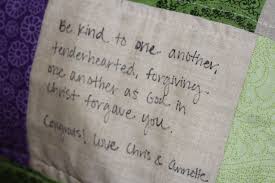 Be kind to one another,
tenderhearted, forgiving
one another as God in
Christ forgave you.
Congrats! Love Chris & Annette